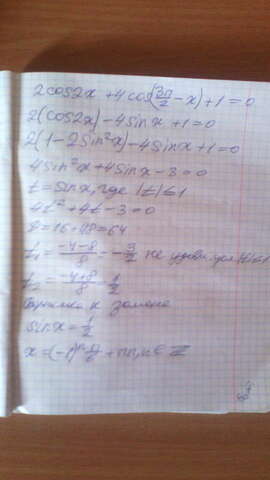 2cos2x + 4cos(3π/2 - x) + 1 = 0
2(cos2x) - 4sinx + 1 = 0
2(1 - 2sin²x) - 4sinx + 1 = 0
4sin²x + 4sinx - 3 = 0
t = sinx, где |t| ≤ 1
4t² + 4t - 3 = 0
D = 16 + 48 = 64
t₁ = (-4-8)/8 = -3/2 не удовл. |t| ≤ 1
t₂ = (-4+8)/8 = 1/2
к замене
sinx = 1/2
x = (-1)ⁿ π/6 + πn, n ∈ Z